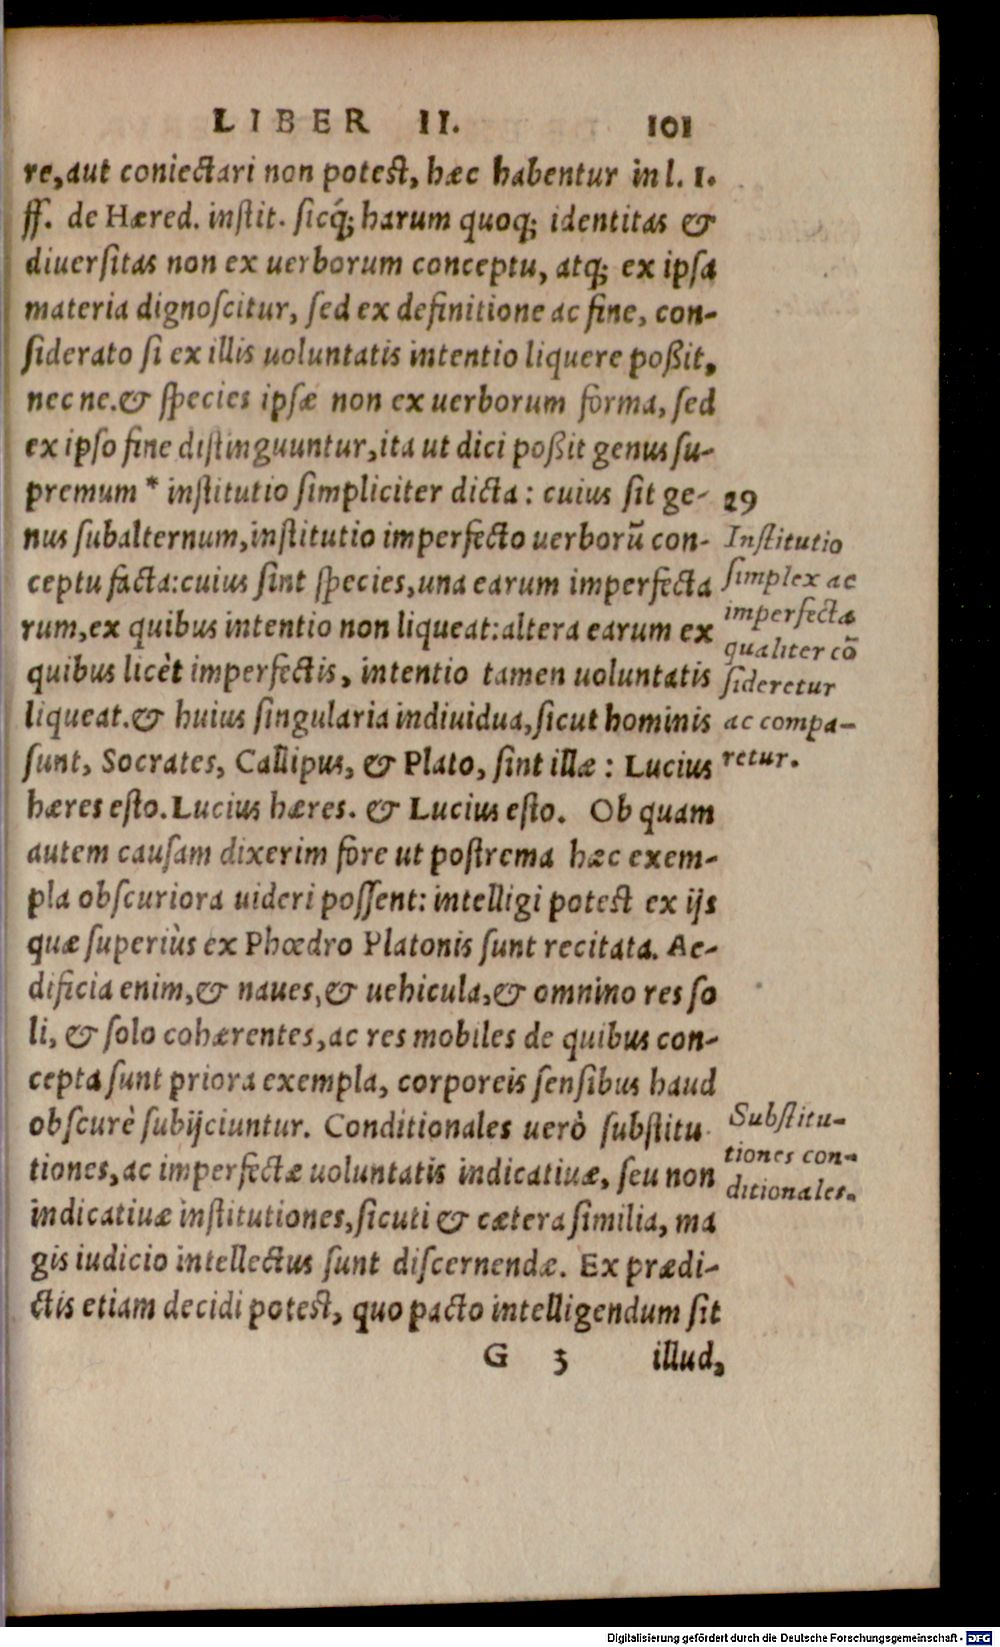 LIBER II. 101
re, aut coniectari non potest, hæc habentur in l. 1.
ff. de Hæred. instit. sicq́; harum quoq; identitas &
diuersitas non ex uerborum conceptu, atq; ex ipsa
materia dignoscitur, sed ex definitione ac fine, con-
siderato si ex illis uoluntatis intentio liquere poßit,
nec ne. & species ipsæ non ex uerborum forma, sed
ex ipso fine distinguuntur, ita ut dici poßit genus su-
premum * institutio simpliciter dicta: cuius sit ge-
nus subalternum, institutio imperfecto uerborũ con-
ceptu facta: cuius sint species, una earum imperfecta
rum, ex quibus intentio non liqueat: altera earum ex
quibus licèt imperfectis, intentio tamen uoluntatis
liqueat. & huius singularia indiuidua, sicut hominis
sunt, Socrates, Callipus, & Plato, sint illæ: Lucius
hæres esto. Lucius hæres. & Lucius esto. Ob quam
autem causam dixerim fore ut postrema hæc exem-
pla obscuriora uideri possent: intelligi potest ex ijs
quæ superiùs ex Phœdro Platonis sunt recitata. Ae-
dificia enim, & naues, & uehicula, & omnino res so
li, & solo cohærentes, ac res mobiles de quibus con-
cepta sunt priora exempla, corporeis sensibus haud
obscurè subijciuntur. Conditionales uerò substitu
tiones, ac imperfectæ uoluntatis indicatiuæ, seu non
indicatiuæ institutiones, sicuti & cætera similia, ma
gis iudicio intellectus sunt discernendæ. Ex prædi-
ctis etiam decidi potest, quo pacto intelligendum sit
G 3 illud,
29
Institutio
simplex ac
imperfecta
qualiter cõ
sideretur
ac compa-
retur.
Substitu-
tiones con-
ditionales.
Digitalisierung gefördert durch die Deutsche Forschungsgemeinschaft - DFG